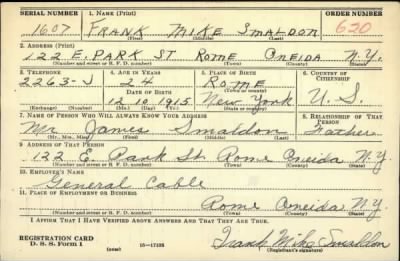 SERIAL NUMBER 1. NAME (Print) ORDER NUMBER
1607 FRANK MIKE SMALDON 620
2. ADDRESS (Print)
122 E. PARK ST ROME ONEIDA N.Y.
3. TELEPHONE 4. AGE IN YEARS 5. PLACE OF BIRTH 6. COUNTRY OF CITIZENSHIP
2263-J 24 ROME
DATE OF BIRTH
12 10 1915 New York U.S.
(Exchange) (Number) (Mo.) (Day) (Yr.) (State or country)
7. NAME OF PERSON WHO WILL ALWAYS KNOW YOUR ADDRESS 8. RELATIONSHIP OF THAT PERSON
Mr. James Smaldon Father
(Mr., Mrs., Miss) (First) (Middle) (Last)
9. ADDRESS OF THAT PERSON
122 E. Park St. Rome Oneida N.Y.
(Number and street or R. F. D. number) (Town) (County) (State)
10. EMPLOYER'S NAME
General Cable
11. PLACE OF EMPLOYMENT OR BUSINESS
Rome Oneida N.Y.
(Number and street or R. F. D. number) (Town) (County) (State)
I AFFIRM THAT I HAVE VERIFIED ABOVE ANSWERS AND THAT THEY ARE TRUE.
REGISTRATION CARD
D. S. S. Form 1 (over) Frank Mike Smaldon
(Registrant's signature)